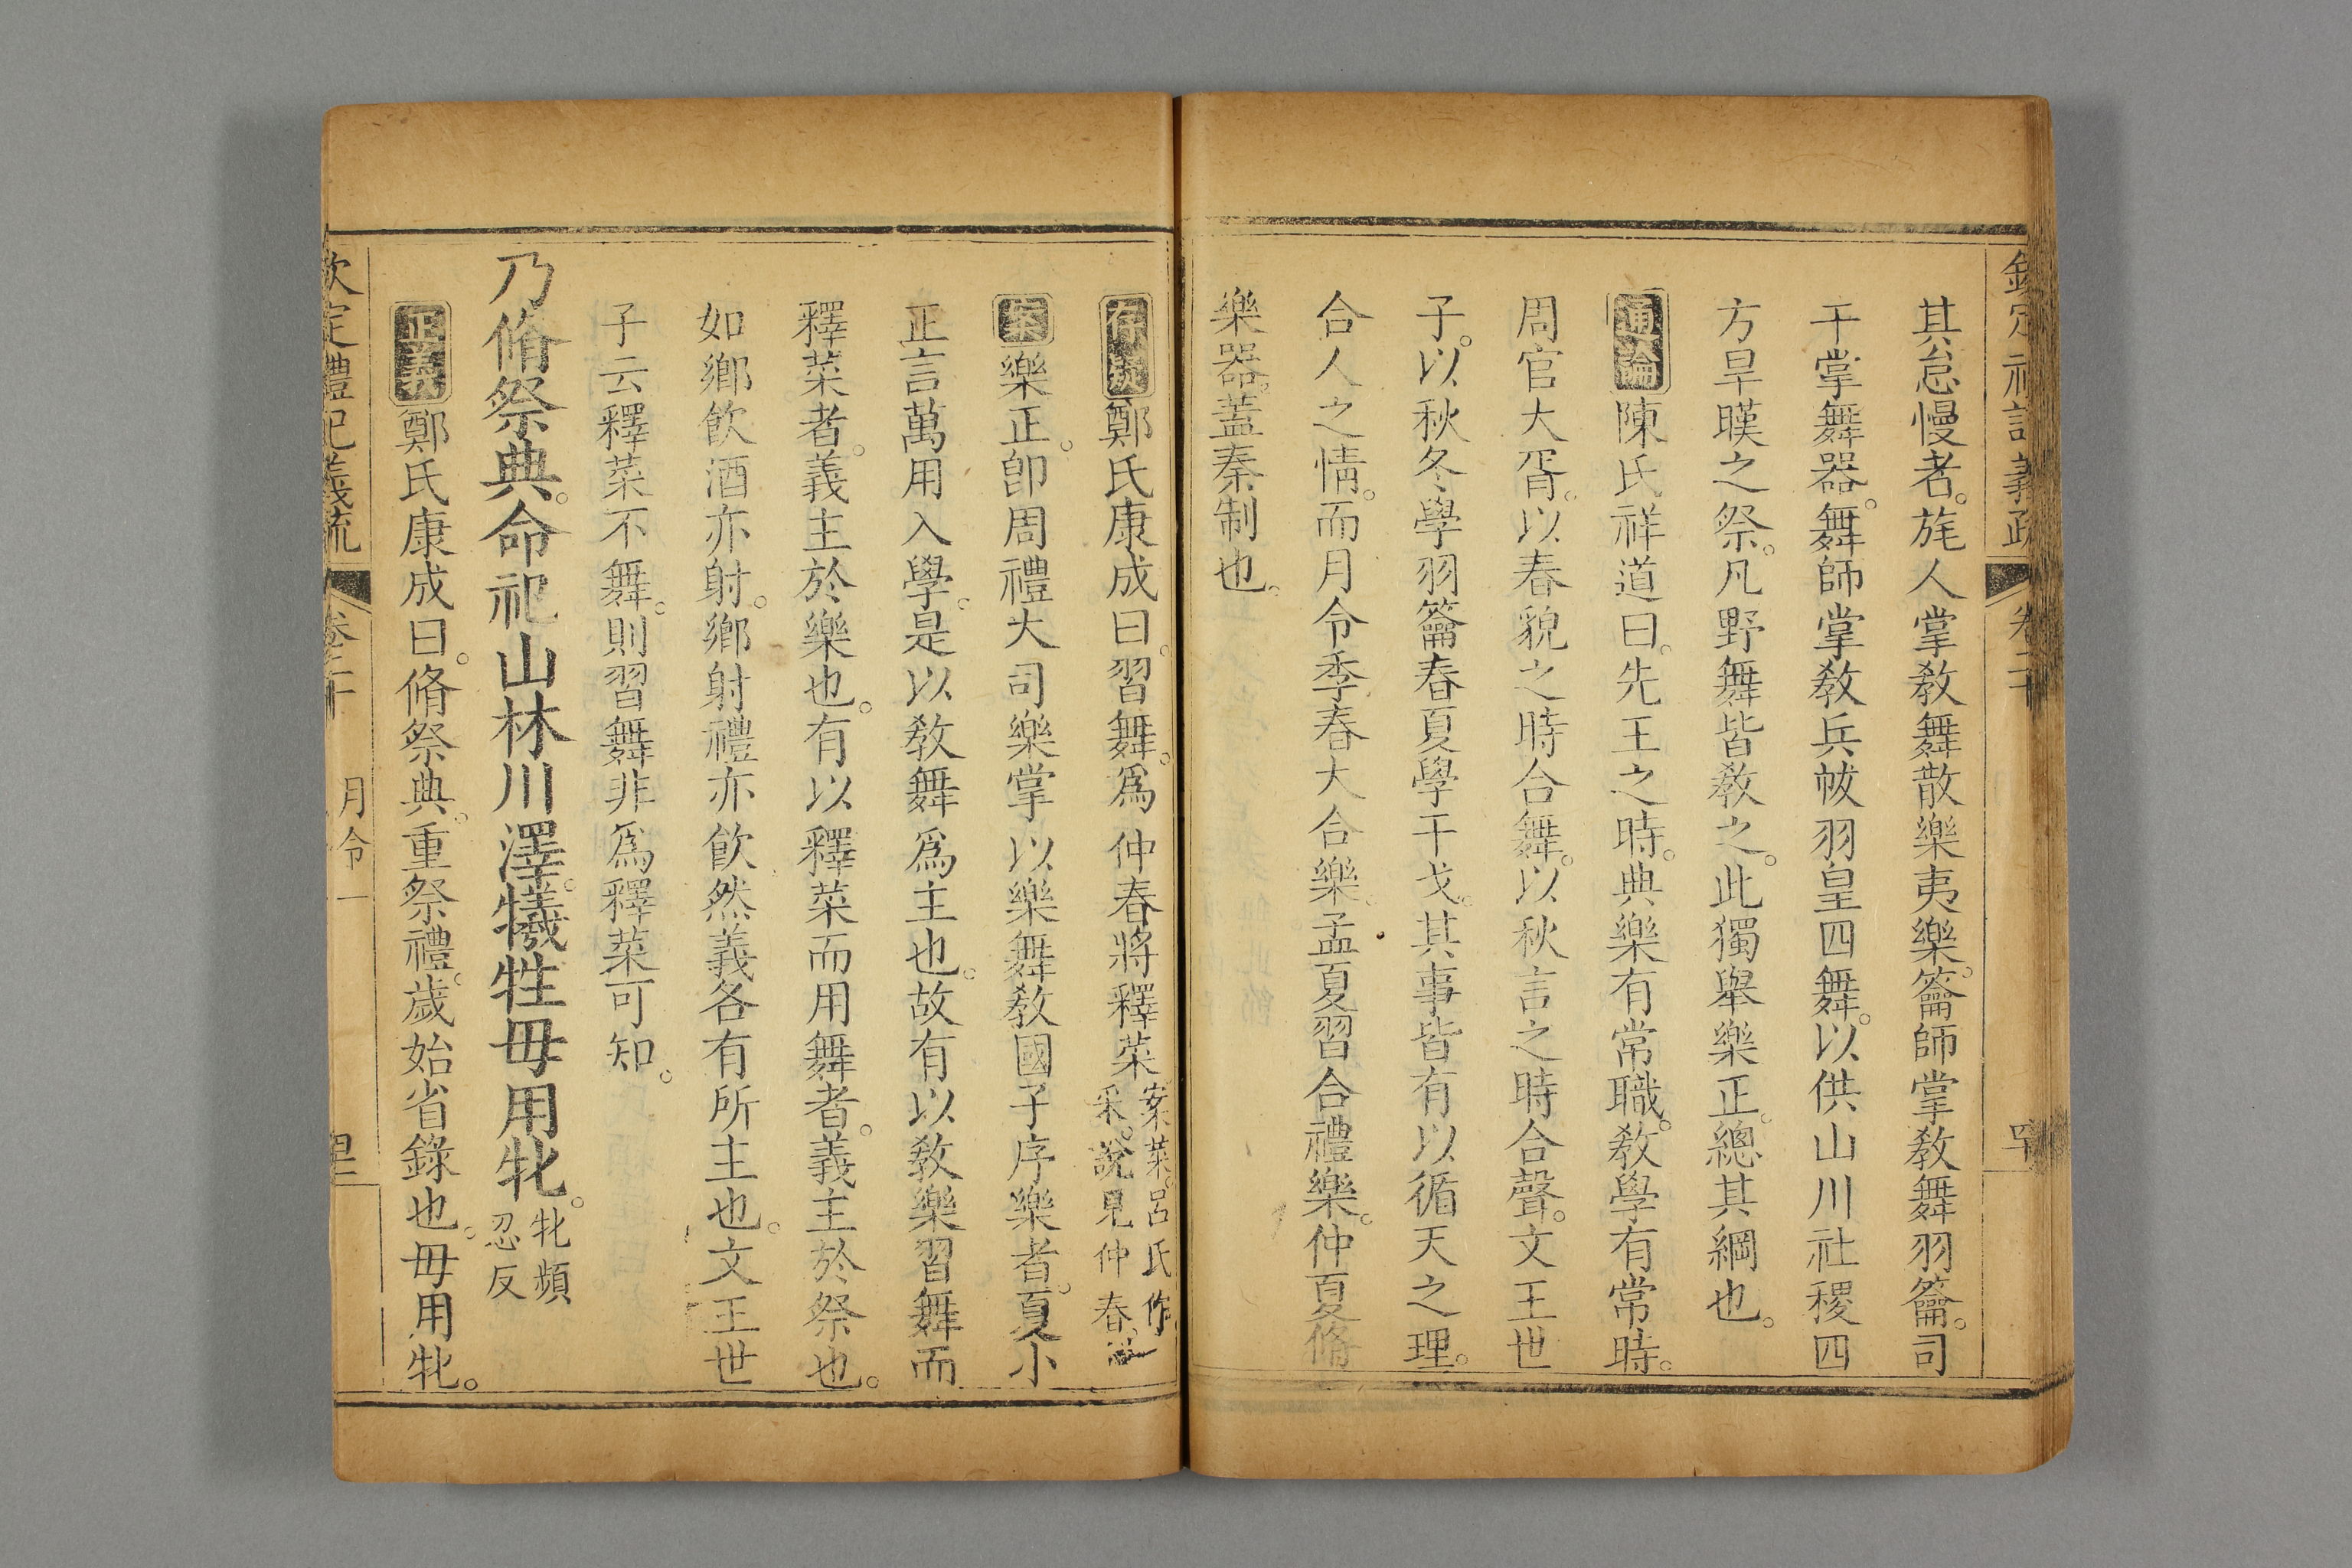 其怠慢者。旄人掌敎舞散樂夷樂。籥師掌敎舞羽籥。司
干掌舞器。舞師掌敎兵帗羽皇四舞。以供山川社稷四
方旱暵之祭。凡野舞皆敎之。此獨舉樂正。總其綱也。
通論陳氏祥道曰。先王之時。典樂有常職。敎學有常時。
周官大胥。以春貌之時合舞。以秋言之時合聲。文王世
子。以秋冬學羽籥春夏學干戈。其事皆有以循天之理。
合人之情。而月令季春大合樂。孟夏習合禮樂。仲夏脩
樂器。蓋秦制也。
存疑鄭氏康成曰。習舞。爲仲春將釋菜案菜。呂氏作采。說見仲春。
案樂正。卽周禮大司樂掌以樂舞敎國子序樂者。夏小
正言萬用入學。是以敎舞爲主也。故有以敎樂習舞而
釋菜者。義主於樂也。有以釋菜而用舞者。義主於祭也。
如鄉飮酒亦射。鄉射禮亦飮然義各有所主也。文王世
子云釋菜不舞。則習舞非爲釋菜可知。
乃脩祭典。命祀山林川澤。犧牲毋用牝。牝頻忍反
正義鄭氏康成曰。脩祭典。重祭禮。歲始省錄也。毋用牝。
欽定禮記義疏 卷二十 月令一